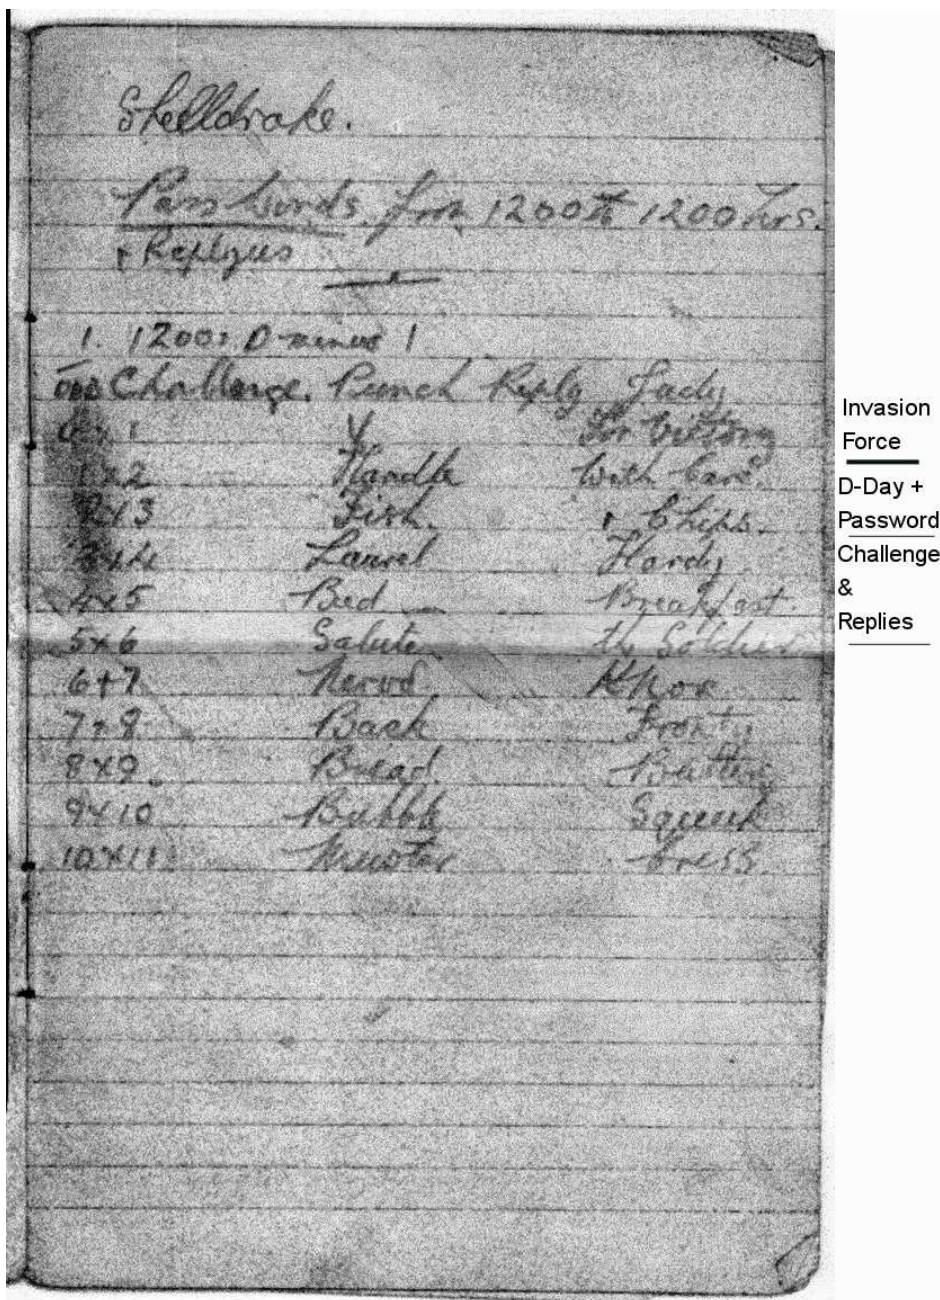 Shelldrake.
Pass Words. from 1200 to 1200 hrs.
& Replyus
1. 1200: D-minus 1
Challenge. Punch Reply Judy
V. For Victory
1x2 Handle With Care.
2x3 Fish. & Chipps.
3x4 Laurel Hardy.
4x5 Bed Breakfast.
5x6 Salute the Soldier
6+7 Nerod Knox
7+8 Back Front
8x9. Bread.
9x10 Bubble Squeek
10x11 Mustar Cress
Invasion
Force
D-Day +
Password
Challenge
&
Replies